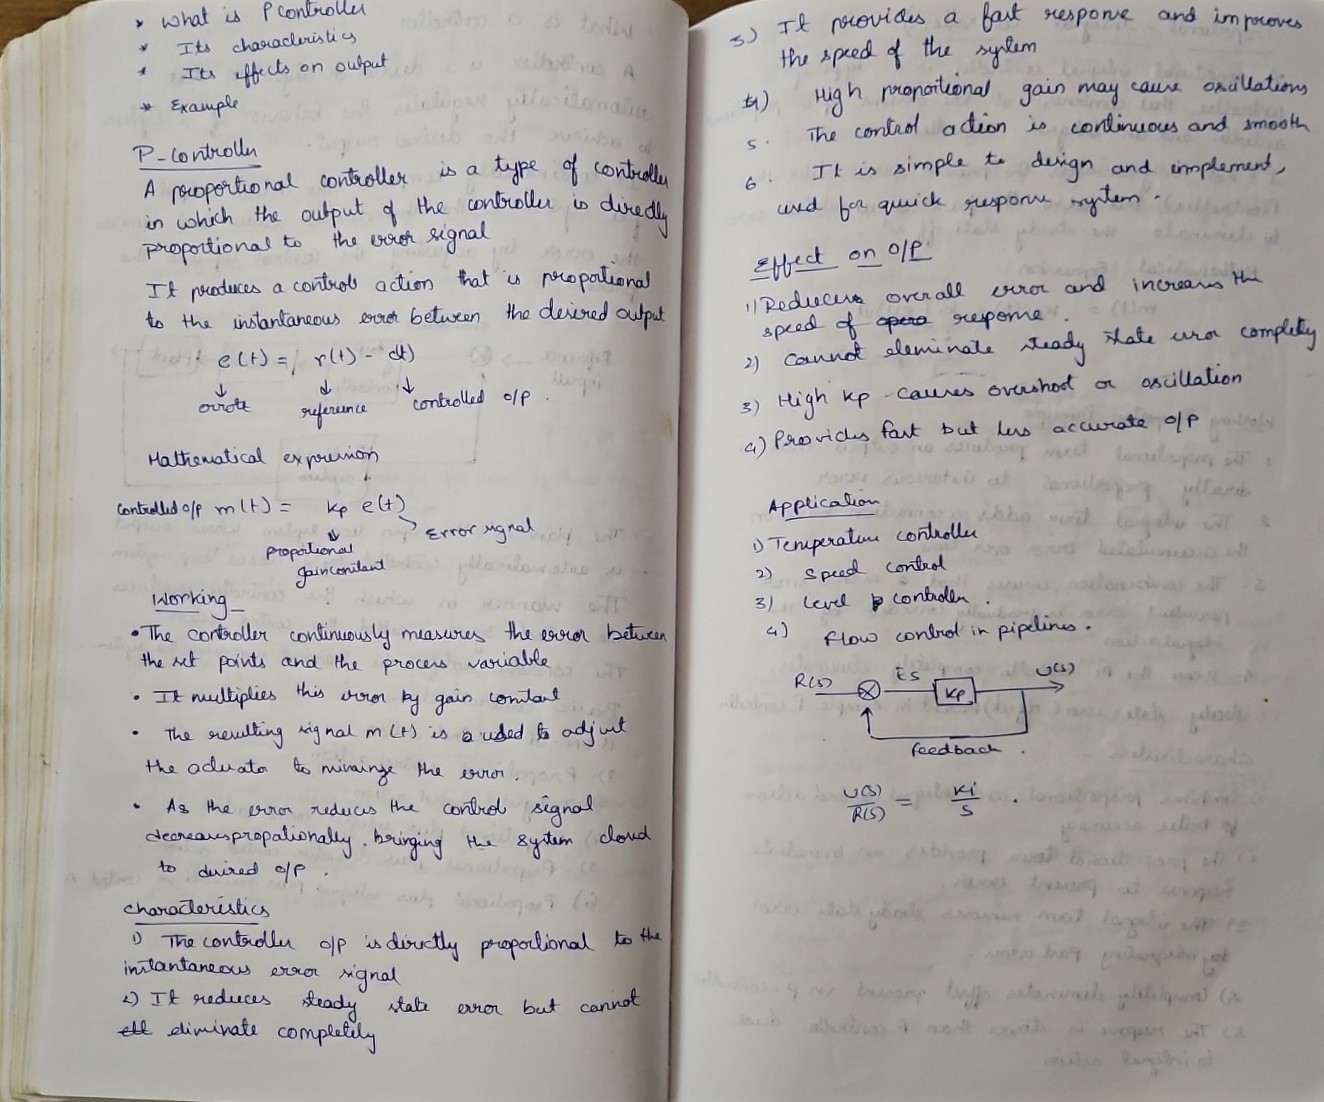 * What is P controller
* Its characteristics
* Its effects on output
* Example
P-Controller
A proportional controller is a type of controller
in which the output of the controller is directly
proportional to the error signal
It produces a control action that is proportional
to the instantaneous error between the desired output
e(t) = r(t) - c(t)
↓ ↓ ↓
reference controlled o/p.
Mathematical expression
controlled o/p m(t) = Kp e(t)
Error signal
proportional
gain constant
Working
• The controller continuously measures the error between
the set points and the process variable
• It multiplies this error by gain constant
• The resulting signal m(t) is used to adjust
the actuator to the error.
• As the error reduces the control signal
decreases propationally, bringing the system closed
to desired o/p.
Characteristics
1) The controller o/p is directly proportional to the
instantaneous error signal
2) It reduces steady state error but cannot
eliminate completely
3) It provides a fast response and improves
the speed of the system
4) High proportional gain may cause oscillations
5. The control action is continuous and smooth
6. It is simple to design and implement,
used for quick response system.
Effect on O/P
1) Reduces overall error and increases the
speed of response.
2) Cannot eleminate steady state error completly
3) High Kp - causes overshoot or oscillation
4) Provides fast but less accurate o/p
Application
1) Temperature controller
2) Speed control
3) Level controller.
4) Flow control in pipelines.
R(s) ES Kp U(s)
Feedback.
U(s)/R(s) = Ki/S.